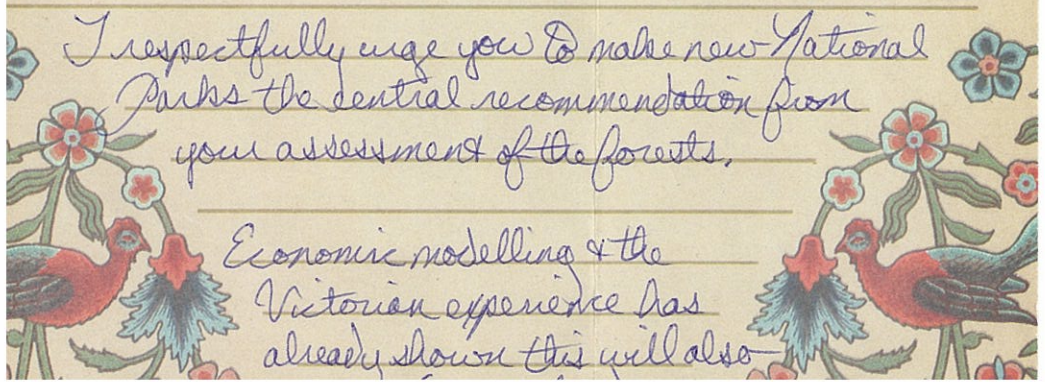 I respectfully urge you to make new National
Parks the central recommendation from
your assessment of the forests.
Economic modelling & the
Victorian experience has
already shown this will also